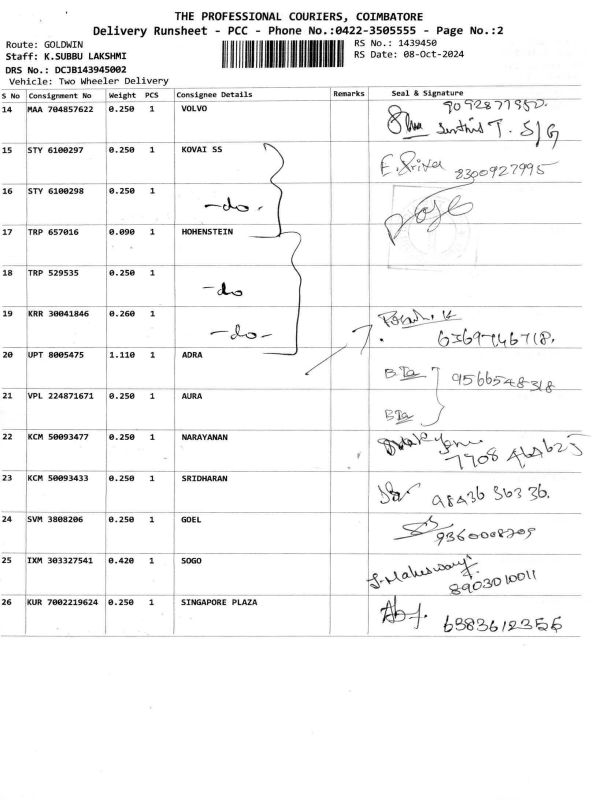 THE PROFESSIONAL COURIERS, COIMBATORE
Delivery Runsheet - PCC - Phone No.:0422-3505555 - Page No.:2
Route: GOLDWIN
RS No.: 1439450
Staff: K.SUBBU LAKSHMI
RS Date: 08-Oct-2024
DRS No.: DCJB143945002
Vehicle: Two Wheeler Delivery
S No Consignment No Weight PCS Consignee Details Remarks Seal & Signature
14 MAA 704857622 0.250 1 VOLVO
T. S/G
15 STY 6100297 0.250 1 KOVAI SS
E. Priya 8300927995
16 STY 6100298 0.250 1
-do.
17 TRP 657016 0.090 1 HOHENSTEIN
18 TRP 529535 0.250 1
-do
19 KRR 30041846 0.260 1
-do-
6369746718.
20 UPT 8005475 1.110 1 ADRA
9566548318
21 VPL 224871671 0.250 1 AURA
22 KCM 50093477 0.250 1 NARAYANAN
7708464625
23 KCM 50093433 0.250 1 SRIDHARAN
98436 36336.
24 SVM 3808206 0.250 1 GOEL
9360008209
25 IXM 303327541 0.420 1 SOGO
J. Maheswari
8903010011
26 KUR 7002219624 0.250 1 SINGAPORE PLAZA
6383612356